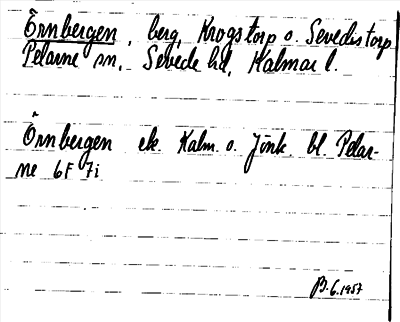 Örnbergen, berg, Krogstorp o. Sevedstorp
Pelarne sn, Sevede hd, Kalmar l.
Örnbergen ek. Kalm. o. Jönk. bl. Pelar-
ne 6F 7i
B. G. 1957